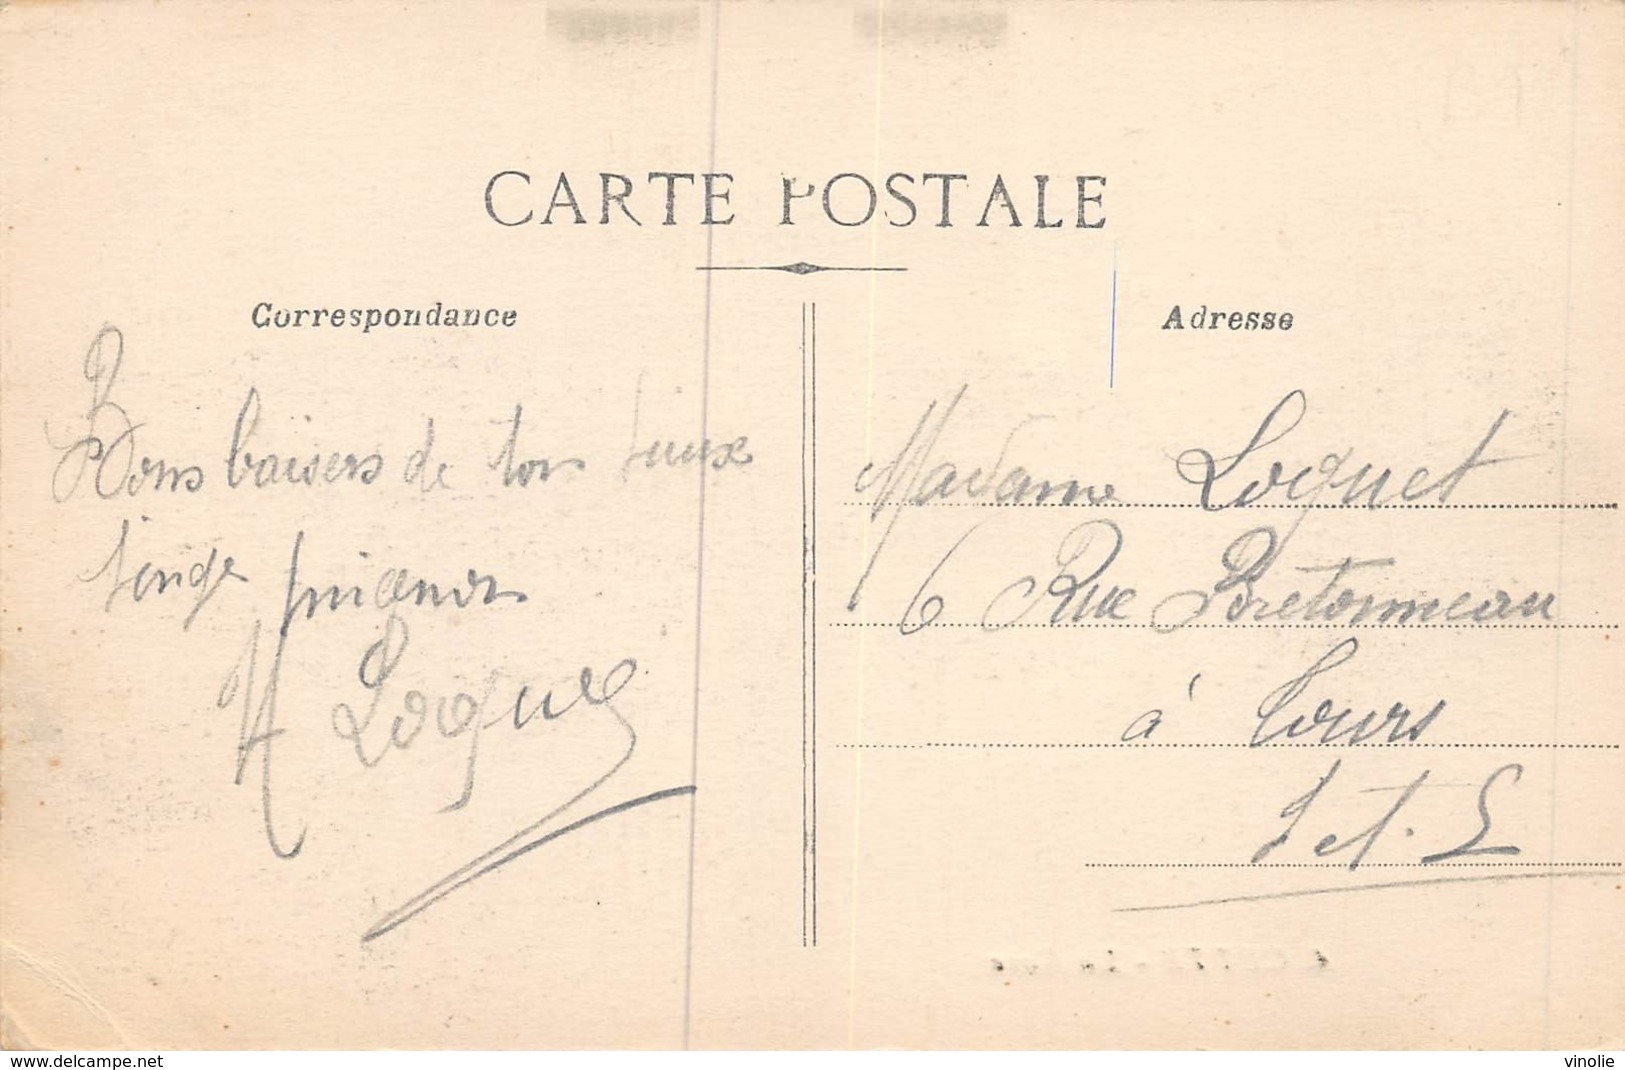 CARTE POSTALE
Correspondance
Adresse
Bons baisers de ton
Loquet
Madame Loquet
6 Rue Bretonneau
à Tours
I et. L
www.delcampe.net
vinolie